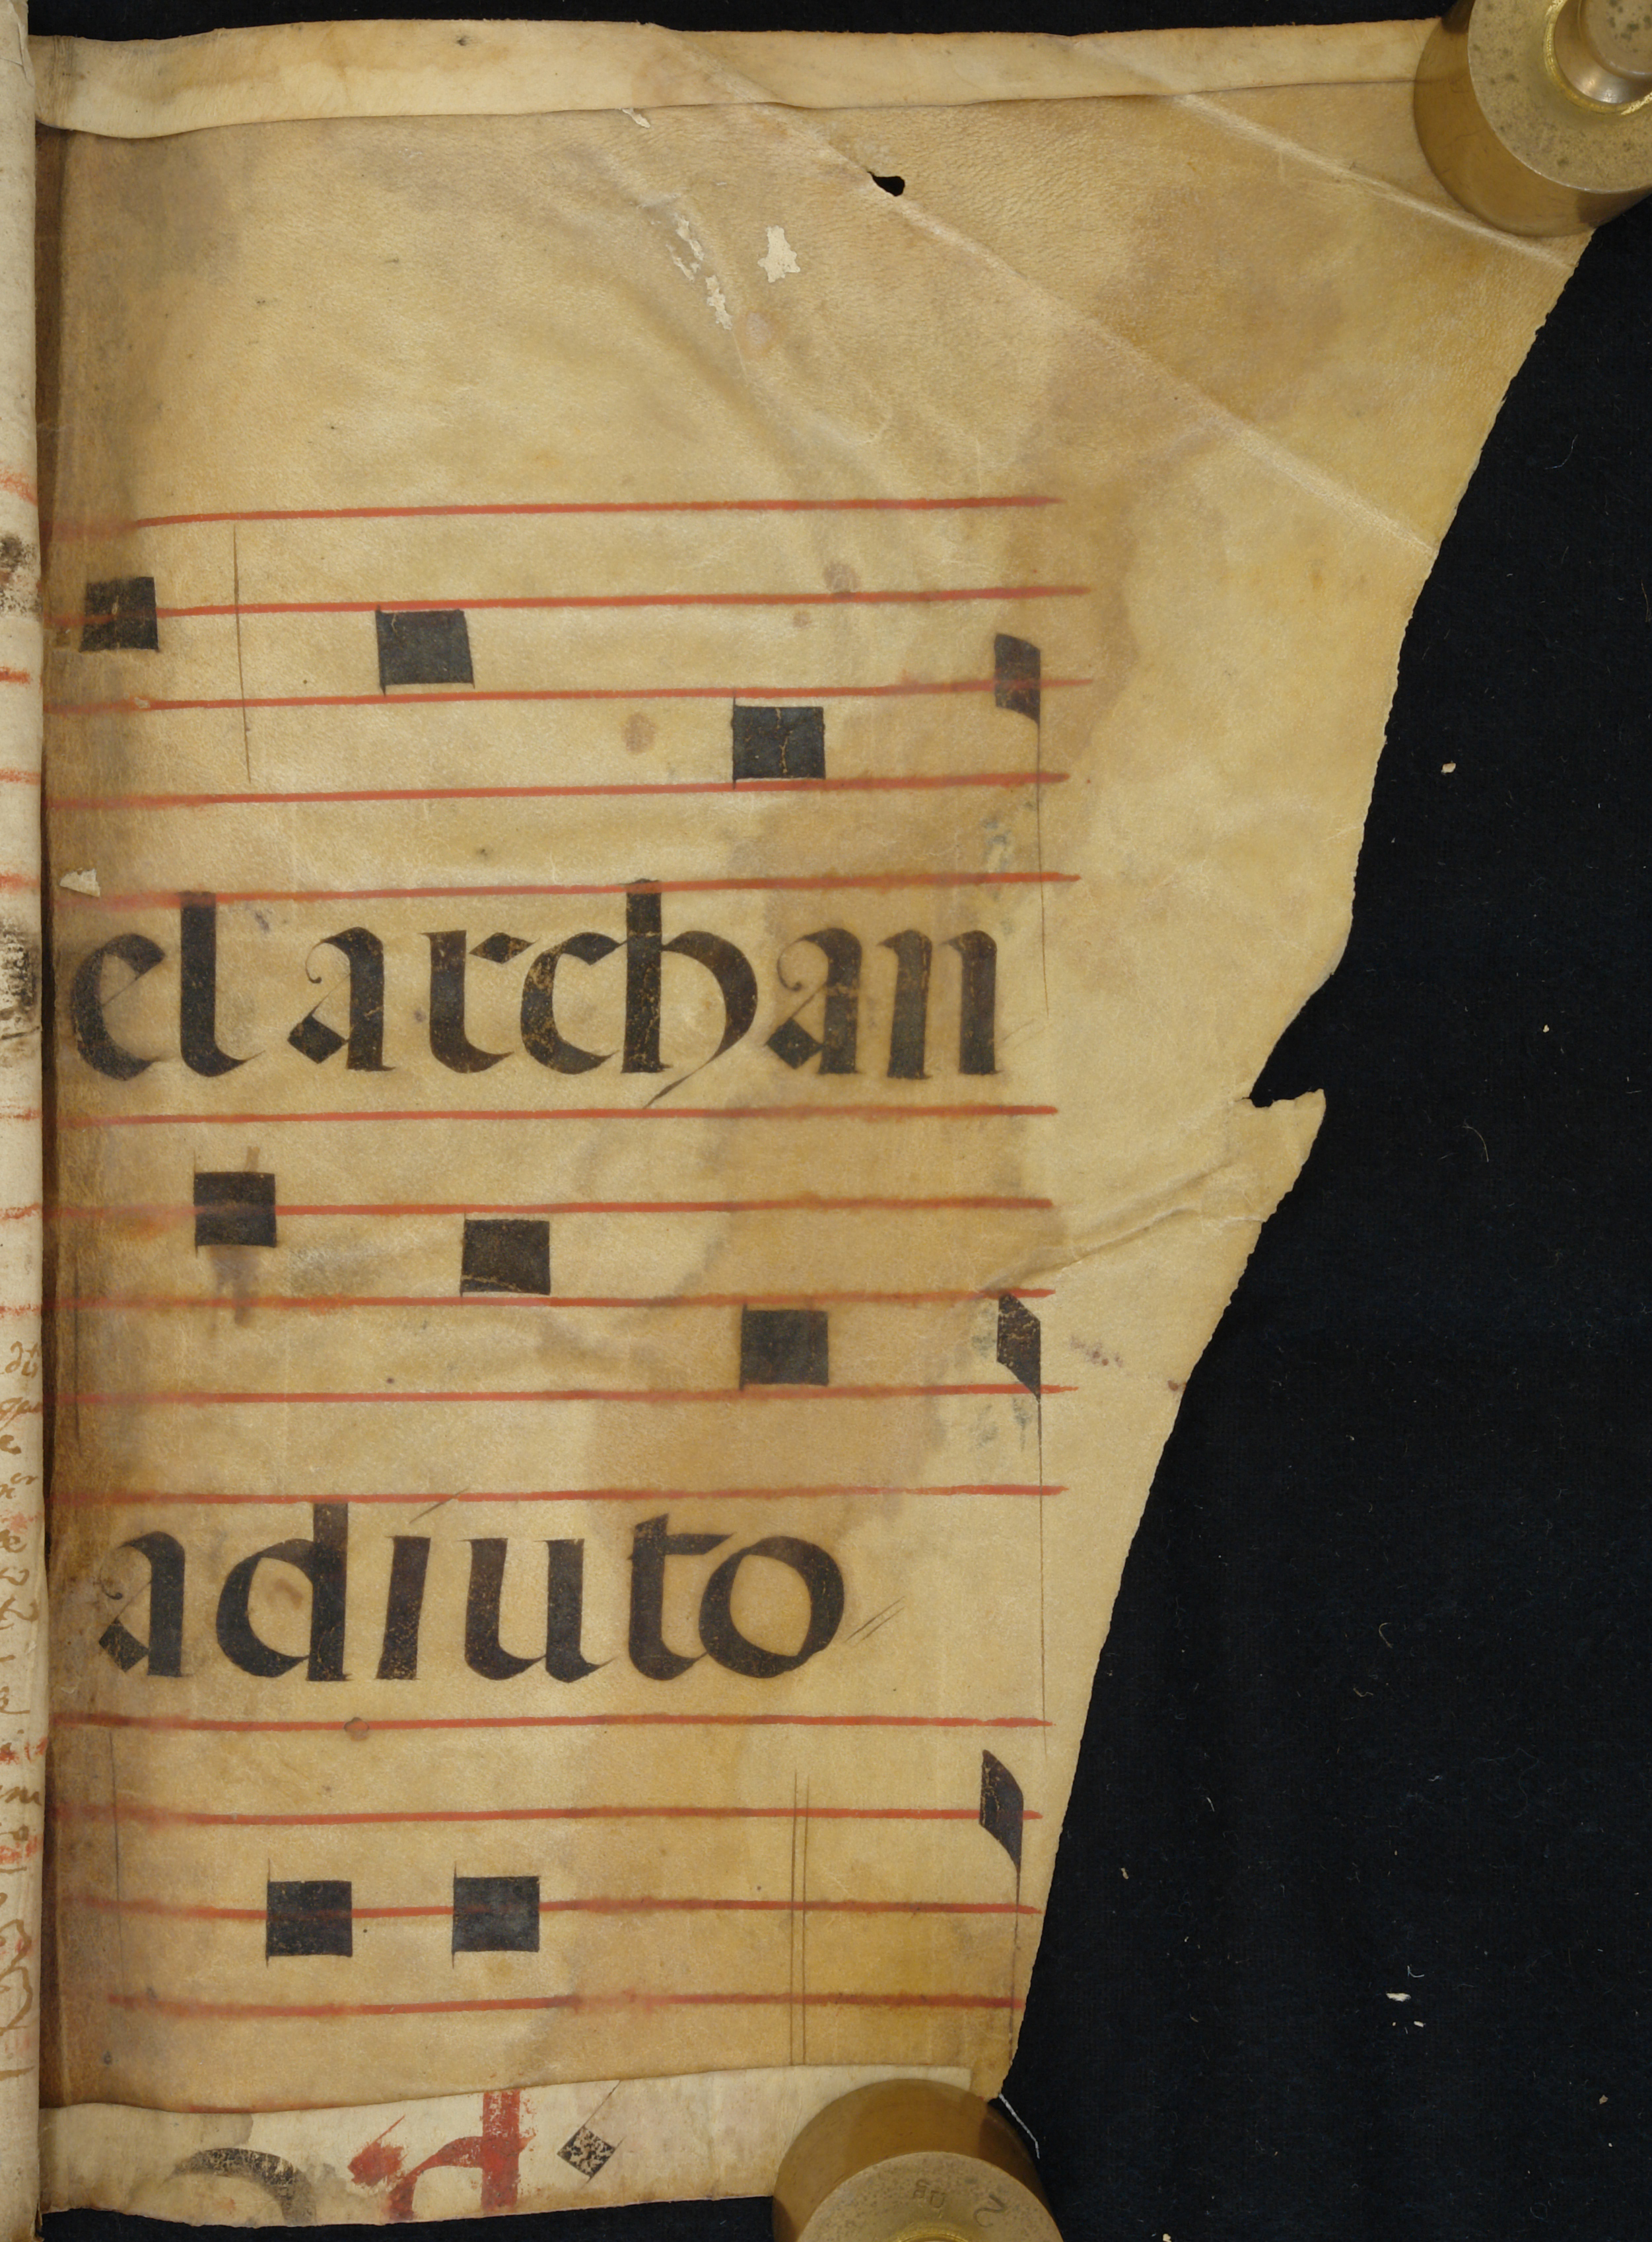 el archan
adiuto